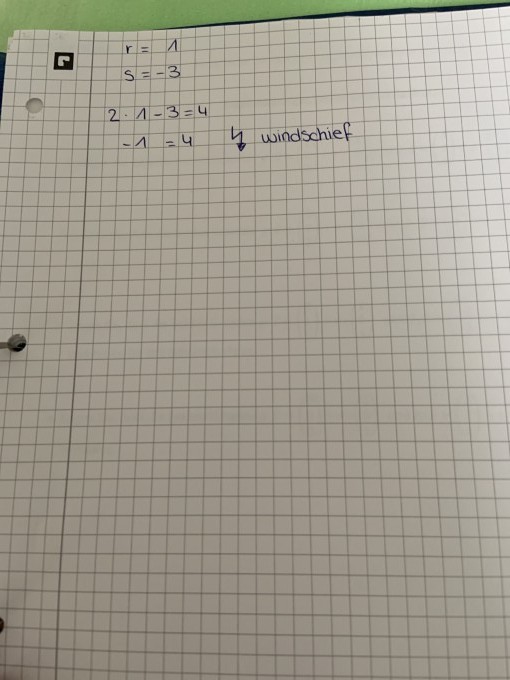 r = 1
s = -3
2 · 1 - 3 = 4
-1 = 4 ↯ windschief